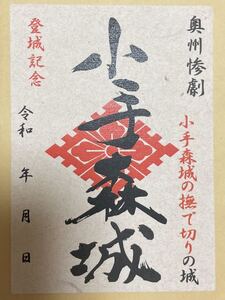 奥州惨劇
小手森城の撫で切りの城
小手森城
登城記念
令和 年 月 日